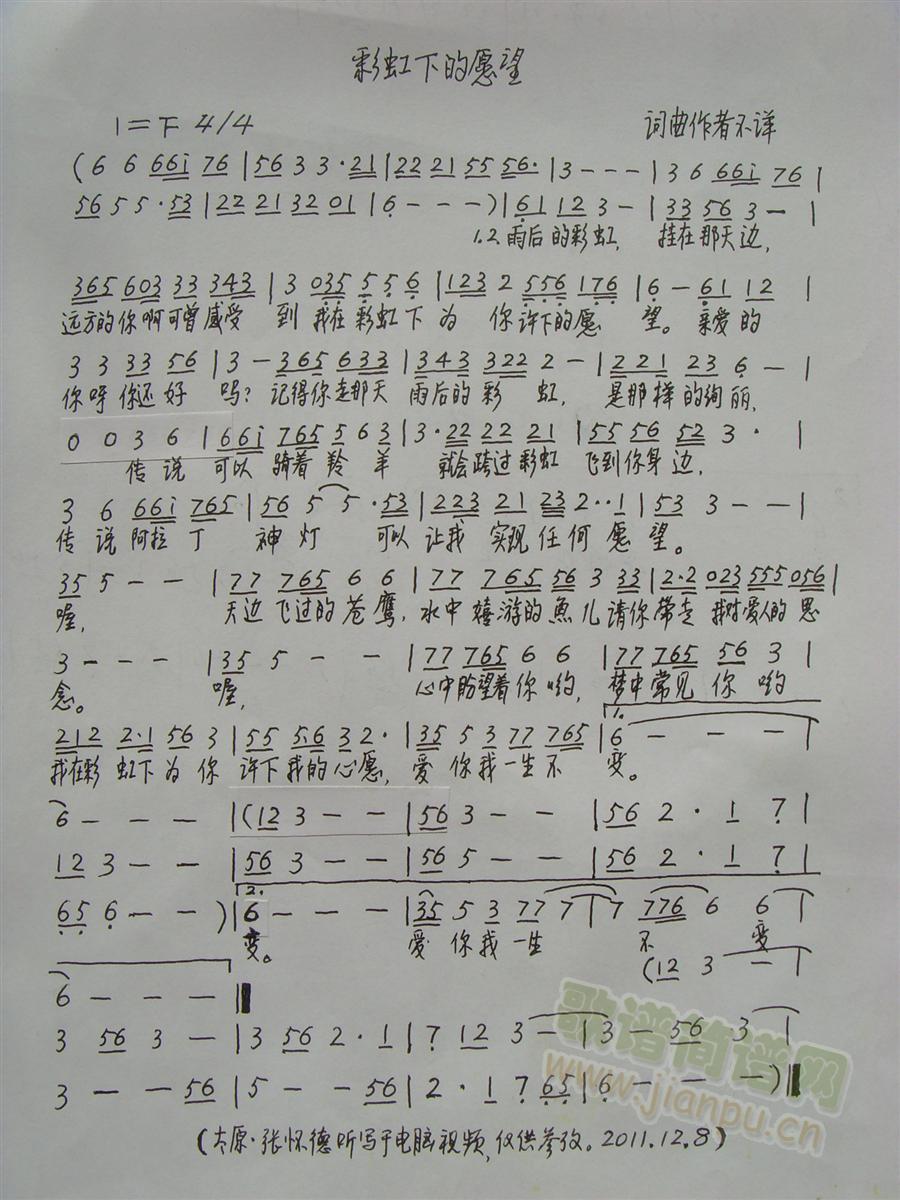 彩虹下的愿望
1=F 4/4 词曲作者不详
(6 6 66i 76 | 56 3 3·21 | 22 21 55 56· | 3 - - - | 3 6 66i 76 |
56 5 5·53 | 22 21 32 01 | 6 - - - ) | 61 12 3 - | 33 56 3 - |
1.2.雨后的彩虹, 挂在那天边,
365 603 33 343 | 3 035 5 5 6 | 123 2 556 176 | 6 - 61 12 |
远方的你啊可曾感受 到 我在彩虹下 为 你许下的愿 望。 亲爱的
3 3 33 56 | 3 - 365 633 | 343 322 2 - | 221 23 6 - |
你呀你还好 吗? 记得你走那天 雨后的彩 虹, 是那样的绚丽,
0 0 3 6 | 66i 765 5 6 3 | 3·22 22 21 | 55 56 52 3 · |
传说 可以 骑着羚羊 就会跨过彩虹 飞到你身边,
3 6 66i 765 | 56 5 5·53 | 223 21 23 2··1 | 53 3 - - |
传说阿拉丁 神灯 可以 让我 实现任何愿望。
35 5 - - | 77 765 6 6 | 77 765 56 3 33 | 2·2 023 555 056 |
喔, 天边飞过的苍鹰, 水中嬉游的魚儿请你带走 我对爱人的思
3 - - - | 35 5 - - | 77 765 6 6 | 77 765 56 3 |
念。 喔, 心中盼望着你哟, 梦中常见你哟
1.
212 2·1 56 3 | 55 56 32· | 35 5 3 77 765 | 6 - - - |
我在彩虹下为你 许下我的心愿, 爱你我一生不 变。
6 - - - | (12 3 - - | 56 3 - - | 56 2 · 1 7 |
12 3 - - | 56 3 - - | 56 5 - - | 56 2 · 1 7 |
2.
65 6 - - ) | 6 - - - | 35 5 3 77 7 | 7 776 6 6 |
变。 爱你我一生 不 变
(12 3 - |
6 - - - ‖
3 56 3 - | 3 56 2·1 | 7 12 3 - | 3 - 56 3 |
3 - - 56 | 5 - - 56 | 2 · 1 7 65 | 6 - - - ) ‖
(太原·张怀德听写于电脑视频,仅供参攷。2011.12.8)
歌谱简谱网
www.jianpu.cn